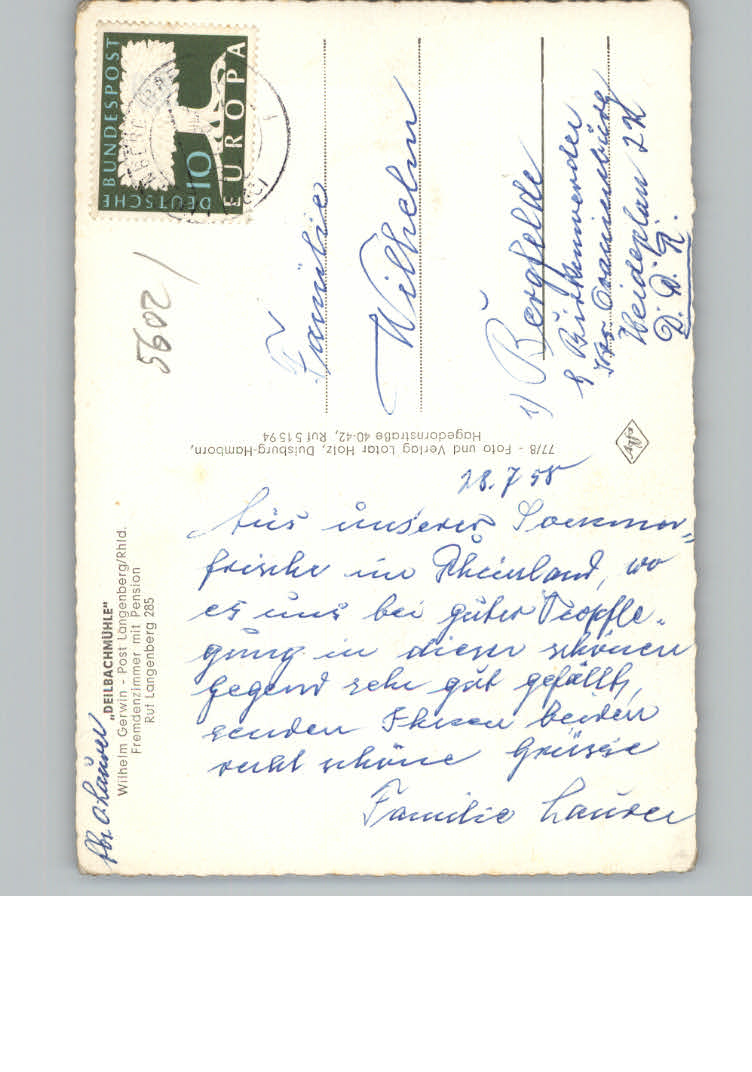 "DEILBACHMÜHLE"
Wilhelm Gerwin - Post Langenberg/Rhld.
Fremdenzimmer mit Pension
Ruf Langenberg 285
Abs. O. Laurer
28.7 58
Aus unserer Sommer-
frische im Rheinland, wo
es uns bei guter Verpfle-
gung in dieser schönen
Gegend sehr gut gefällt,
senden Ihnen beiden
recht schöne Grüsse
Familie Laurer
77/8 - Foto und Verlag Lotar Holz, Duisburg-Hamborn,
Hagedornstraße 40-42, Ruf 5 15 94
Agfa
DEUTSCHE BUNDESPOST
10
EUROPA
5602
Familie
Wilhelm
Bergfelde
b Birkenwerder
Krs Oranienburg
Heideplan 22
D. D. R.